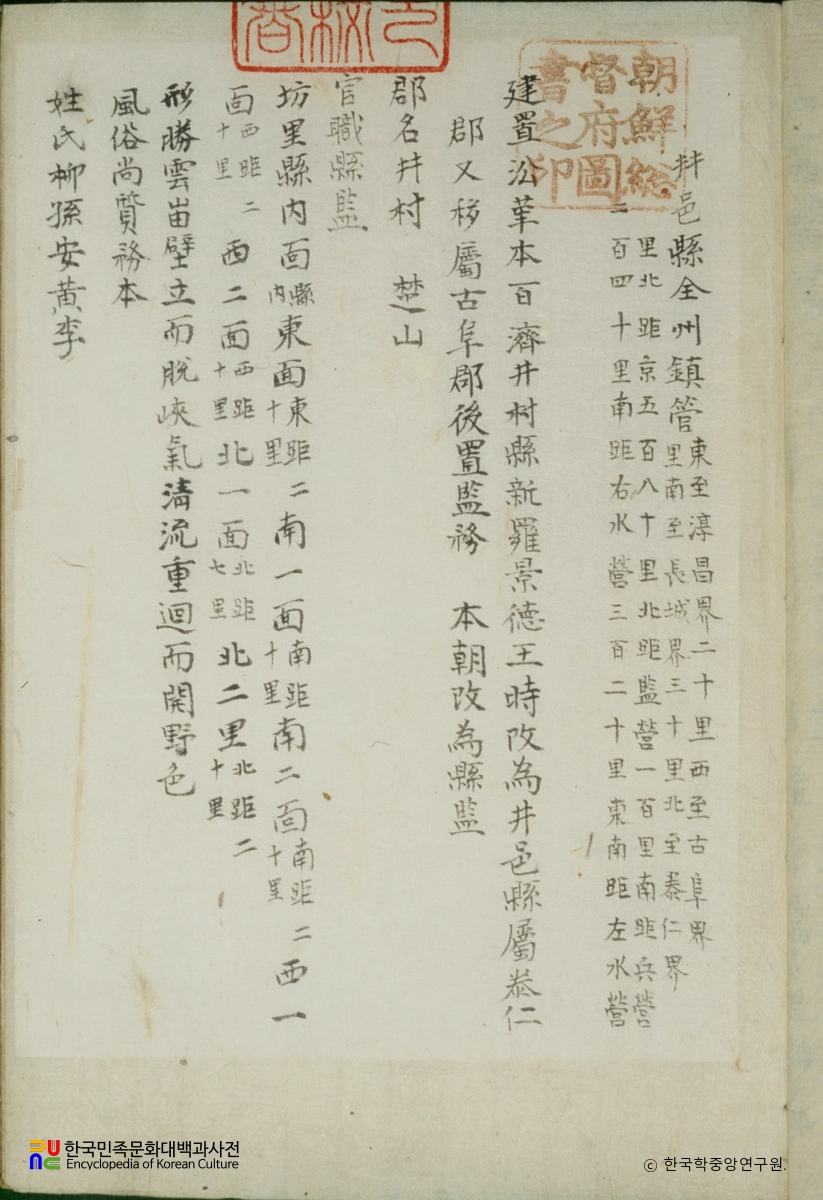 朝鮮總
督府圖
書之印
井邑縣全州鎮管東至淳昌界二十里西至古阜界
里南至長城界三十里北至泰仁界
里北距京五百八十里北距監營一百里南距兵營
二百四十里南距右水營三百二十里東南距左水營
建置沿革本百濟井村縣新羅景德王時改為井邑縣屬泰仁
郡又移屬古阜郡後置監務 本朝改為縣監
郡名井村 楚山
官職縣監
坊里縣內面縣內東面東距二十里南一面南距十里南二面南距二十里西一
面西距二十里西二面西距十里北一面北距七里北二里北距二十里
形勝雲畄壁立而脫峽氣淸流重迴而開野色
風俗尚質務本
姓氏柳孫安黃李
한국민족문화대백과사전
Encyclopedia of Korean Culture
© 한국학중앙연구원.